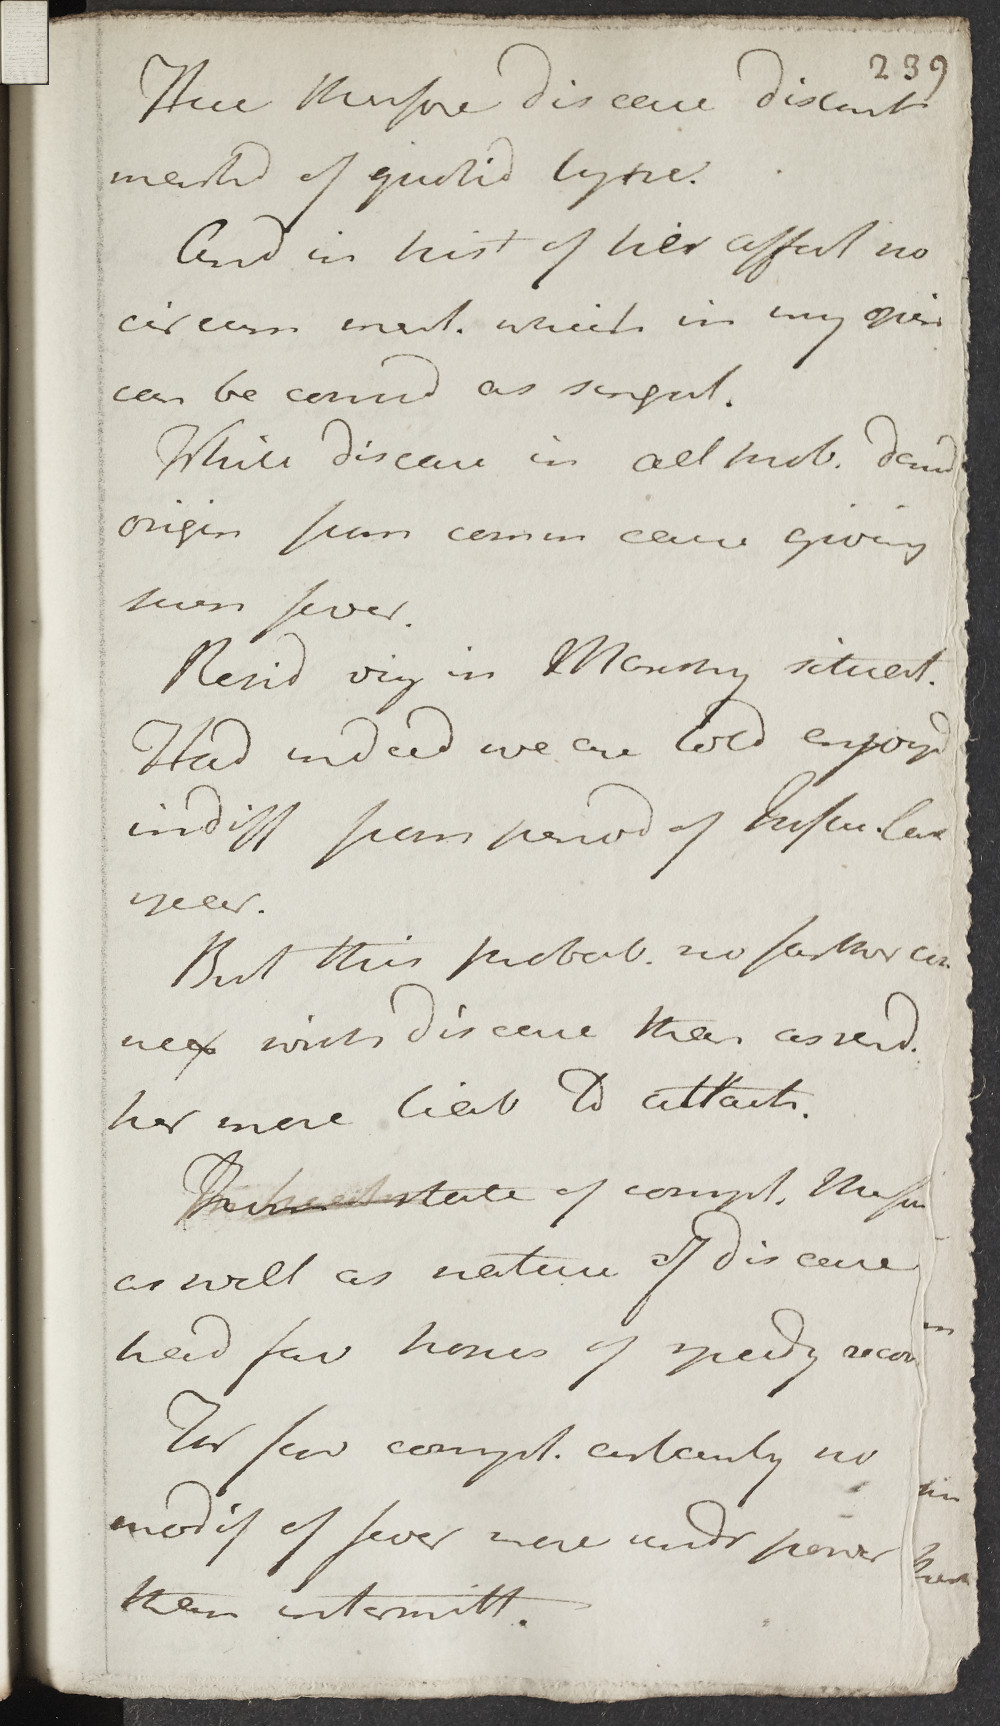 239
Here therefore disease distinct
marked of quotid type.
And in hist of her affect no
circum ment. which in my opin
can be consid as singul.
While disease in all prob. derivd
origin from comon cause giving
such fever.
Resid vig in Marshy situat.
Had indeed we are told enjoyd
indiff from period of last
year.
But this probab. no farther con
nex with disease than as rend.
her more liab to attack.
From state of compl.
as well as nature of disease
had fav hopes of speedy recov
For fav compl. certainly no
modif of fever more undr power
than intermitt.